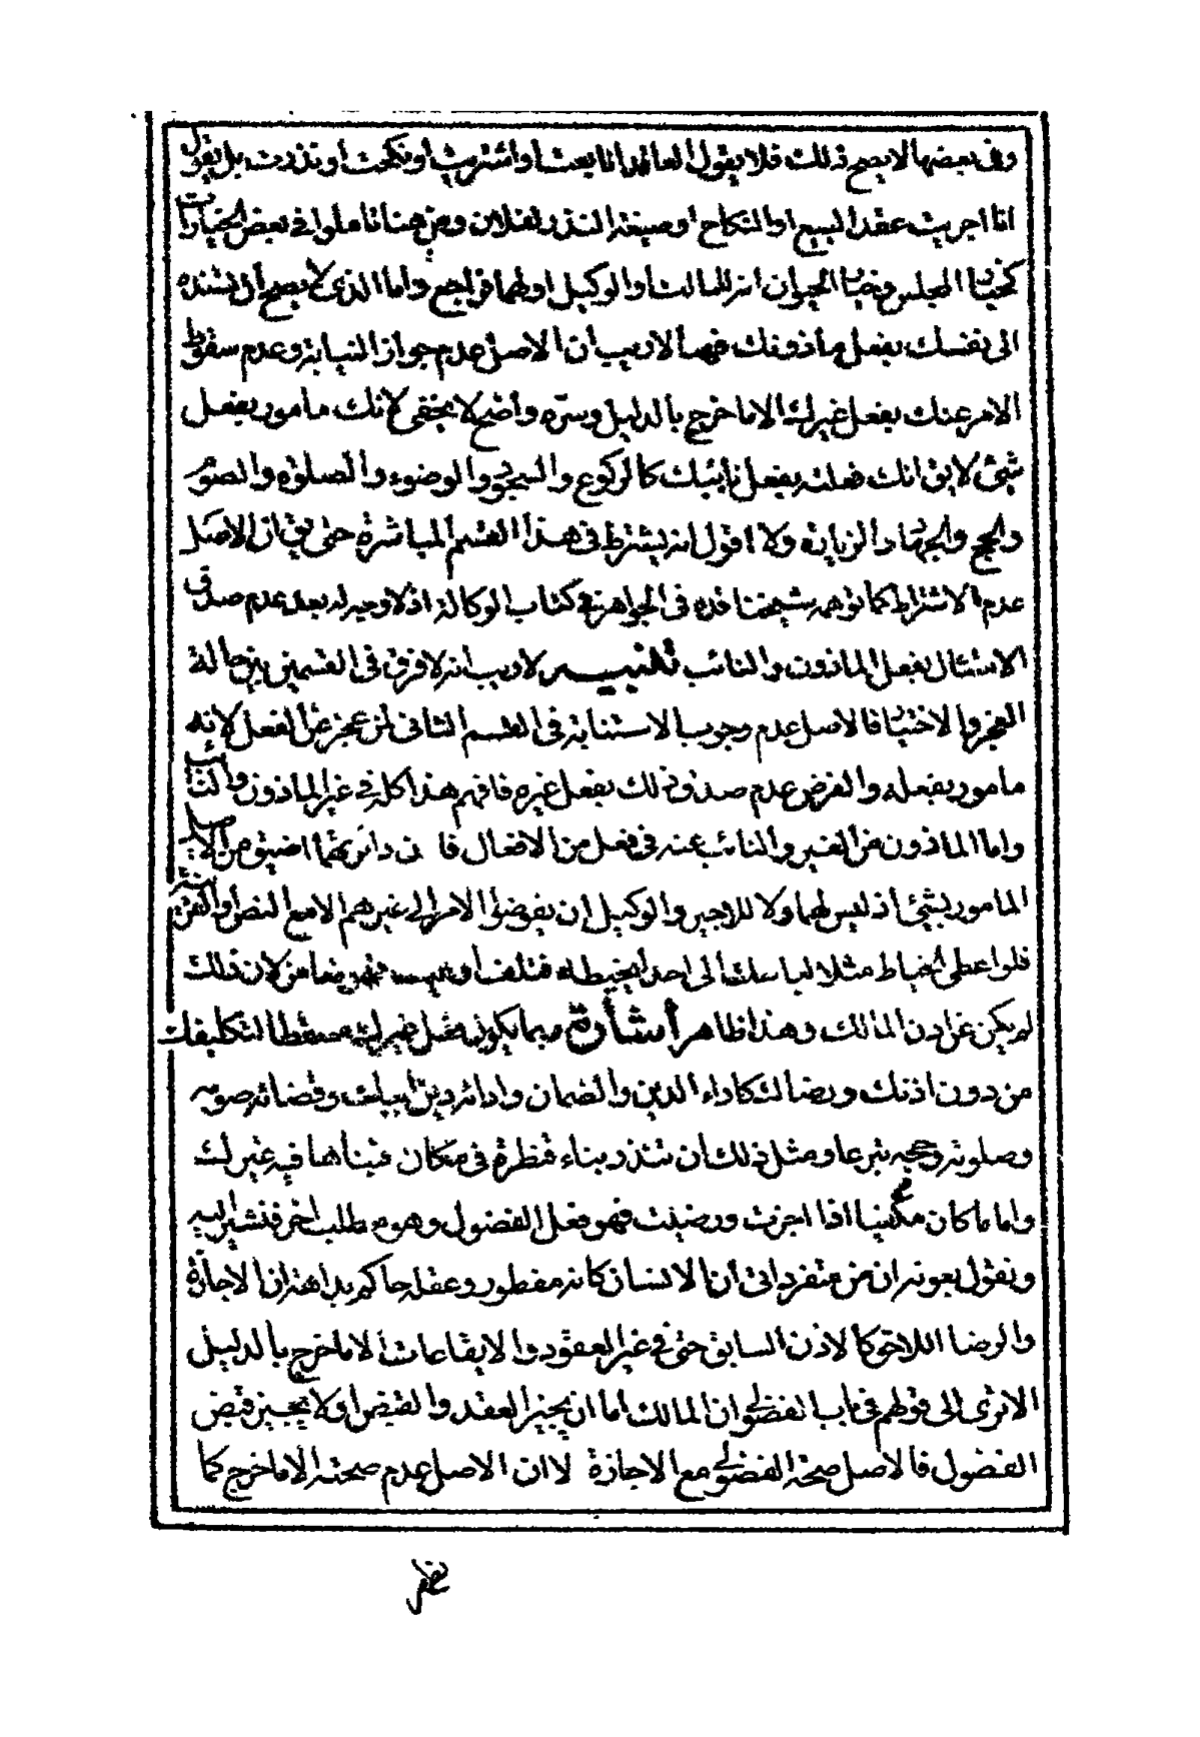 وفى بعضها لا يصح ذلك فلا يقول العالم انا بعت او اشتريت او نكحت او نذرت بل يقول
انا اجريت عقد البيع او النكاح او صيغة النذر لفلان ومن هنا تاملوا فى بعض الخيارات
كخيار المجلس وخيار الحيوان انه للمالك او الوكيل او لهما فراجع واما الذى لا يصح أن تسنده
الى نفسك بفعل مأذونك فهنا لا ريب أن الاصل عدم جواز النيابة وعدم سقوط
الامر عنك بفعل غيرك الا ما خرج بالدليل وسره واضح لا يخفى لانك مامور بفعل
شئ لا يق انك فعلته بفعل نائبك كالركوع والسجود والوضوء والصلوة والصوم
والحج والجهاد والزيارة ولا اقول انه يشترط فى هذا القسم المباشرة حتى يق ان الاصل
عدم الاشتراط كما توهمه شيخنا قده فى الجواهر فى كتاب الوكالة اذ لا وجه له بعد عدم صدق
الامتثال بفعل الماذون والنائب تنبيه لا ريب انه لا فرق فى القسمين بين حالة
العجز والاختيار فالاصل عدم وجوب الاستنابة فى القسم الثانى لمن عجز عن الفعل لانه
مامور بفعله والفرض عدم صدق ذلك بفعل غيره فافهم هذا كله فى غير الماذون والنائب
واما الماذون من الغير والنائب عنه فى فعل من الافعال فان دائرتهما اضيق من الاصيل
المامور بشئ اذ ليس لهما ولا للاجير والوكيل إن يفوضوا الامر الى غيرهم الا مع النص او القرينة
فلو اعطى الخياط مثلا لباسك الى احد ليخيطه فتلف او فهو ضامن لان ذلك
لم يكن عن اذن المالك وهذا ظاهر أشأرة فيما يكون فعل غيرك مسقطا لتكليفك
من دون اذنك ورضاك كاداء الدين والضمان وادائه دين ابيك وقضائه صومه
وصلوته وحجه تبرعا ومثل ذلك أن تنذر بناء قنطرة فى مكان فبناها فيه غيرك
واما ما كان مكفيا اذا اجزت ورضيت فهو فعل الفضول وهو مطلب اخر فنشير اليه
ونقول بعونه ان من متفرداتى أن الانسان كانه مفطور وعقله حاكم بداهة ان الاجازة
والرضا اللاحق كالاذن السابق حتى فى غير العقود والايقاعات الا ما خرج بالدليل
الا ترى الى قولهم فى باب الفضولى ان المالك اما ان يجيز العقد والقبض او لا يجيز قبض
الفضول فالاصل صحة الفضولى مع الاجازة لا ان الاصل عدم صحته الا ما خرج كما